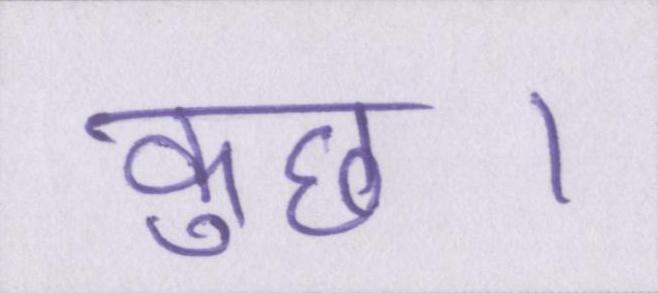 कुछ ।